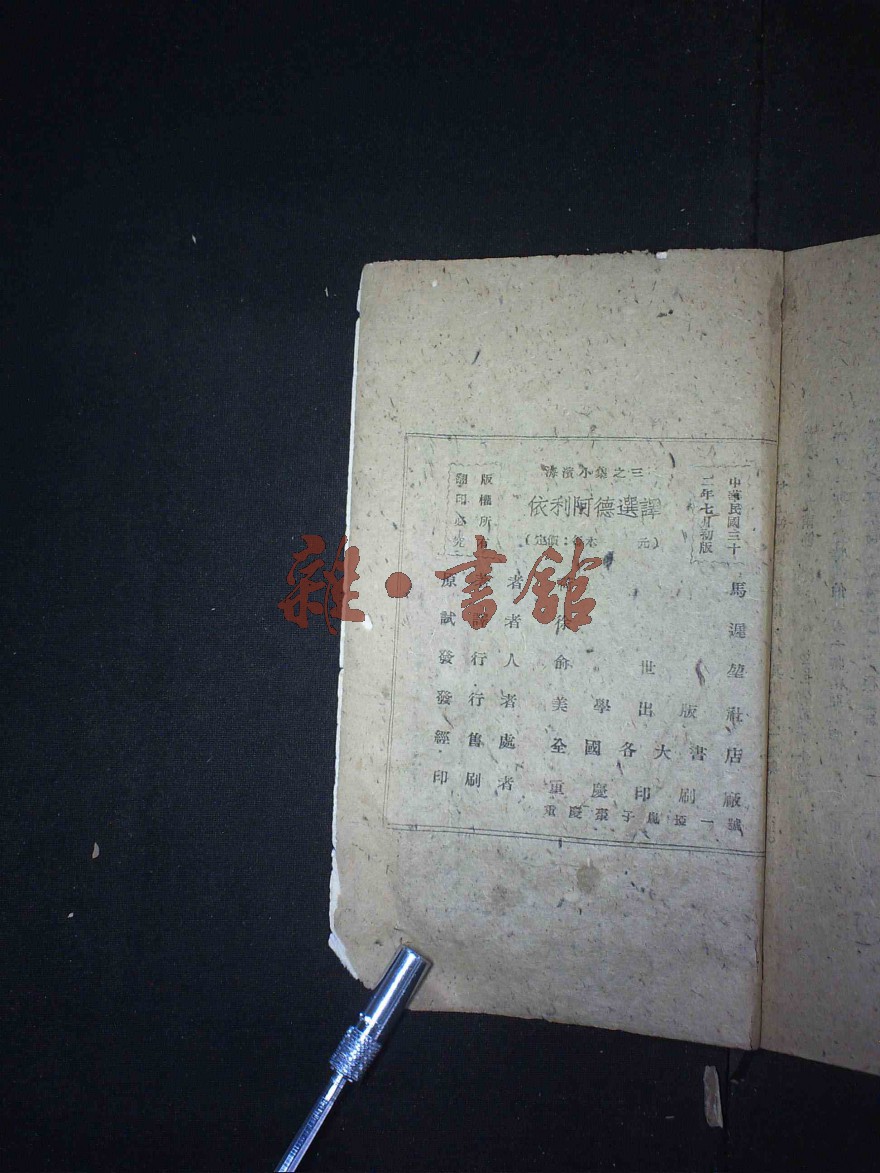 海濱小集之三
依利阿德選譯
中華民國三十
二年七月初版
版權所有
翻印必究
(定價:每本 元)
原著者 荷馬
試譯者 徐遲
發行人 俞世堃
發行者 美學出版社
經售處 全國各大書店
印刷者 重慶印刷廠
重慶棗子嵐埡一號
雜·書館